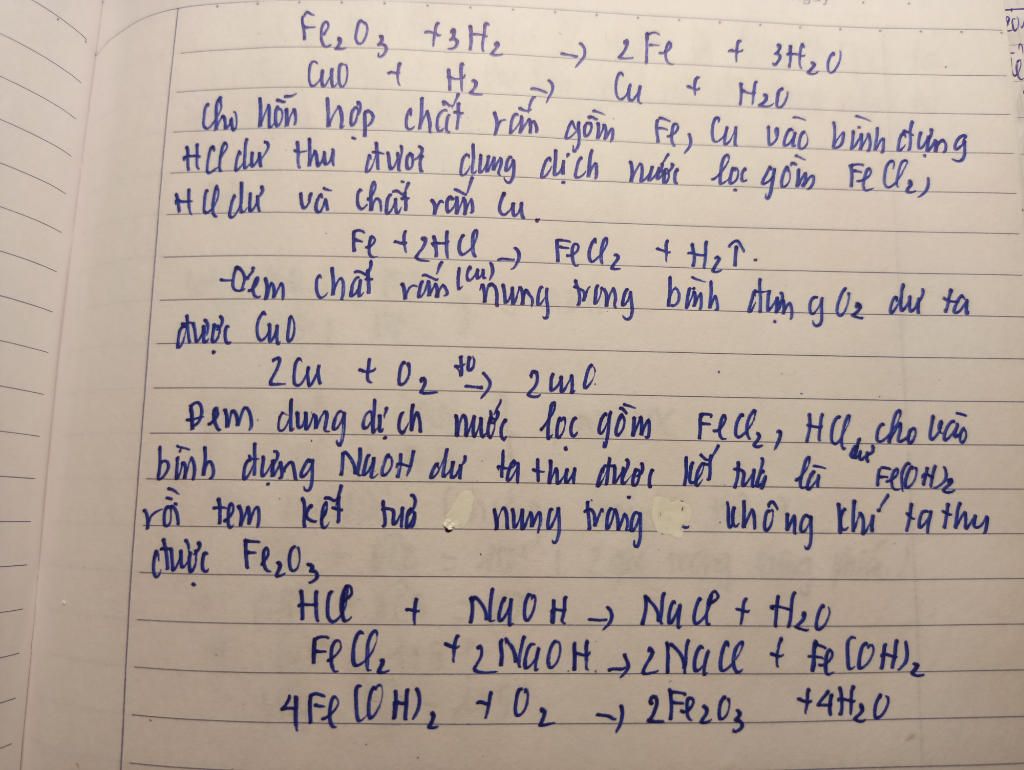 Fe₂O₃ +3H₂ → 2Fe + 3H₂O
CuO + H₂ → Cu + H₂O
Cho hỗn hợp chất rắn gồm Fe, Cu vào bình đựng
HCl dư thu được dung dịch nước lọc gồm FeCl₂,
HCl dư và chất rắn Cu.
Fe +2HCl → FeCl₂ + H₂↑.
-Đem chất rắn (Cu) nung trong bình đựng O₂ dư ta
được CuO
2Cu + O₂ t⁰→ 2CuO
Đem dung dịch nước lọc gồm FeCl₂, HCl dư cho vào
bình đựng NaOH dư ta thu được kết tủa là Fe(OH)₂
rồi tem kết tuả nung trong không khí ta thu
được Fe₂O₃
HCl + NaOH → NaCl + H₂O
FeCl₂ +2NaOH → 2NaCl + Fe(OH)₂
4Fe(OH)₂ + O₂ → 2Fe₂O₃ +4H₂O